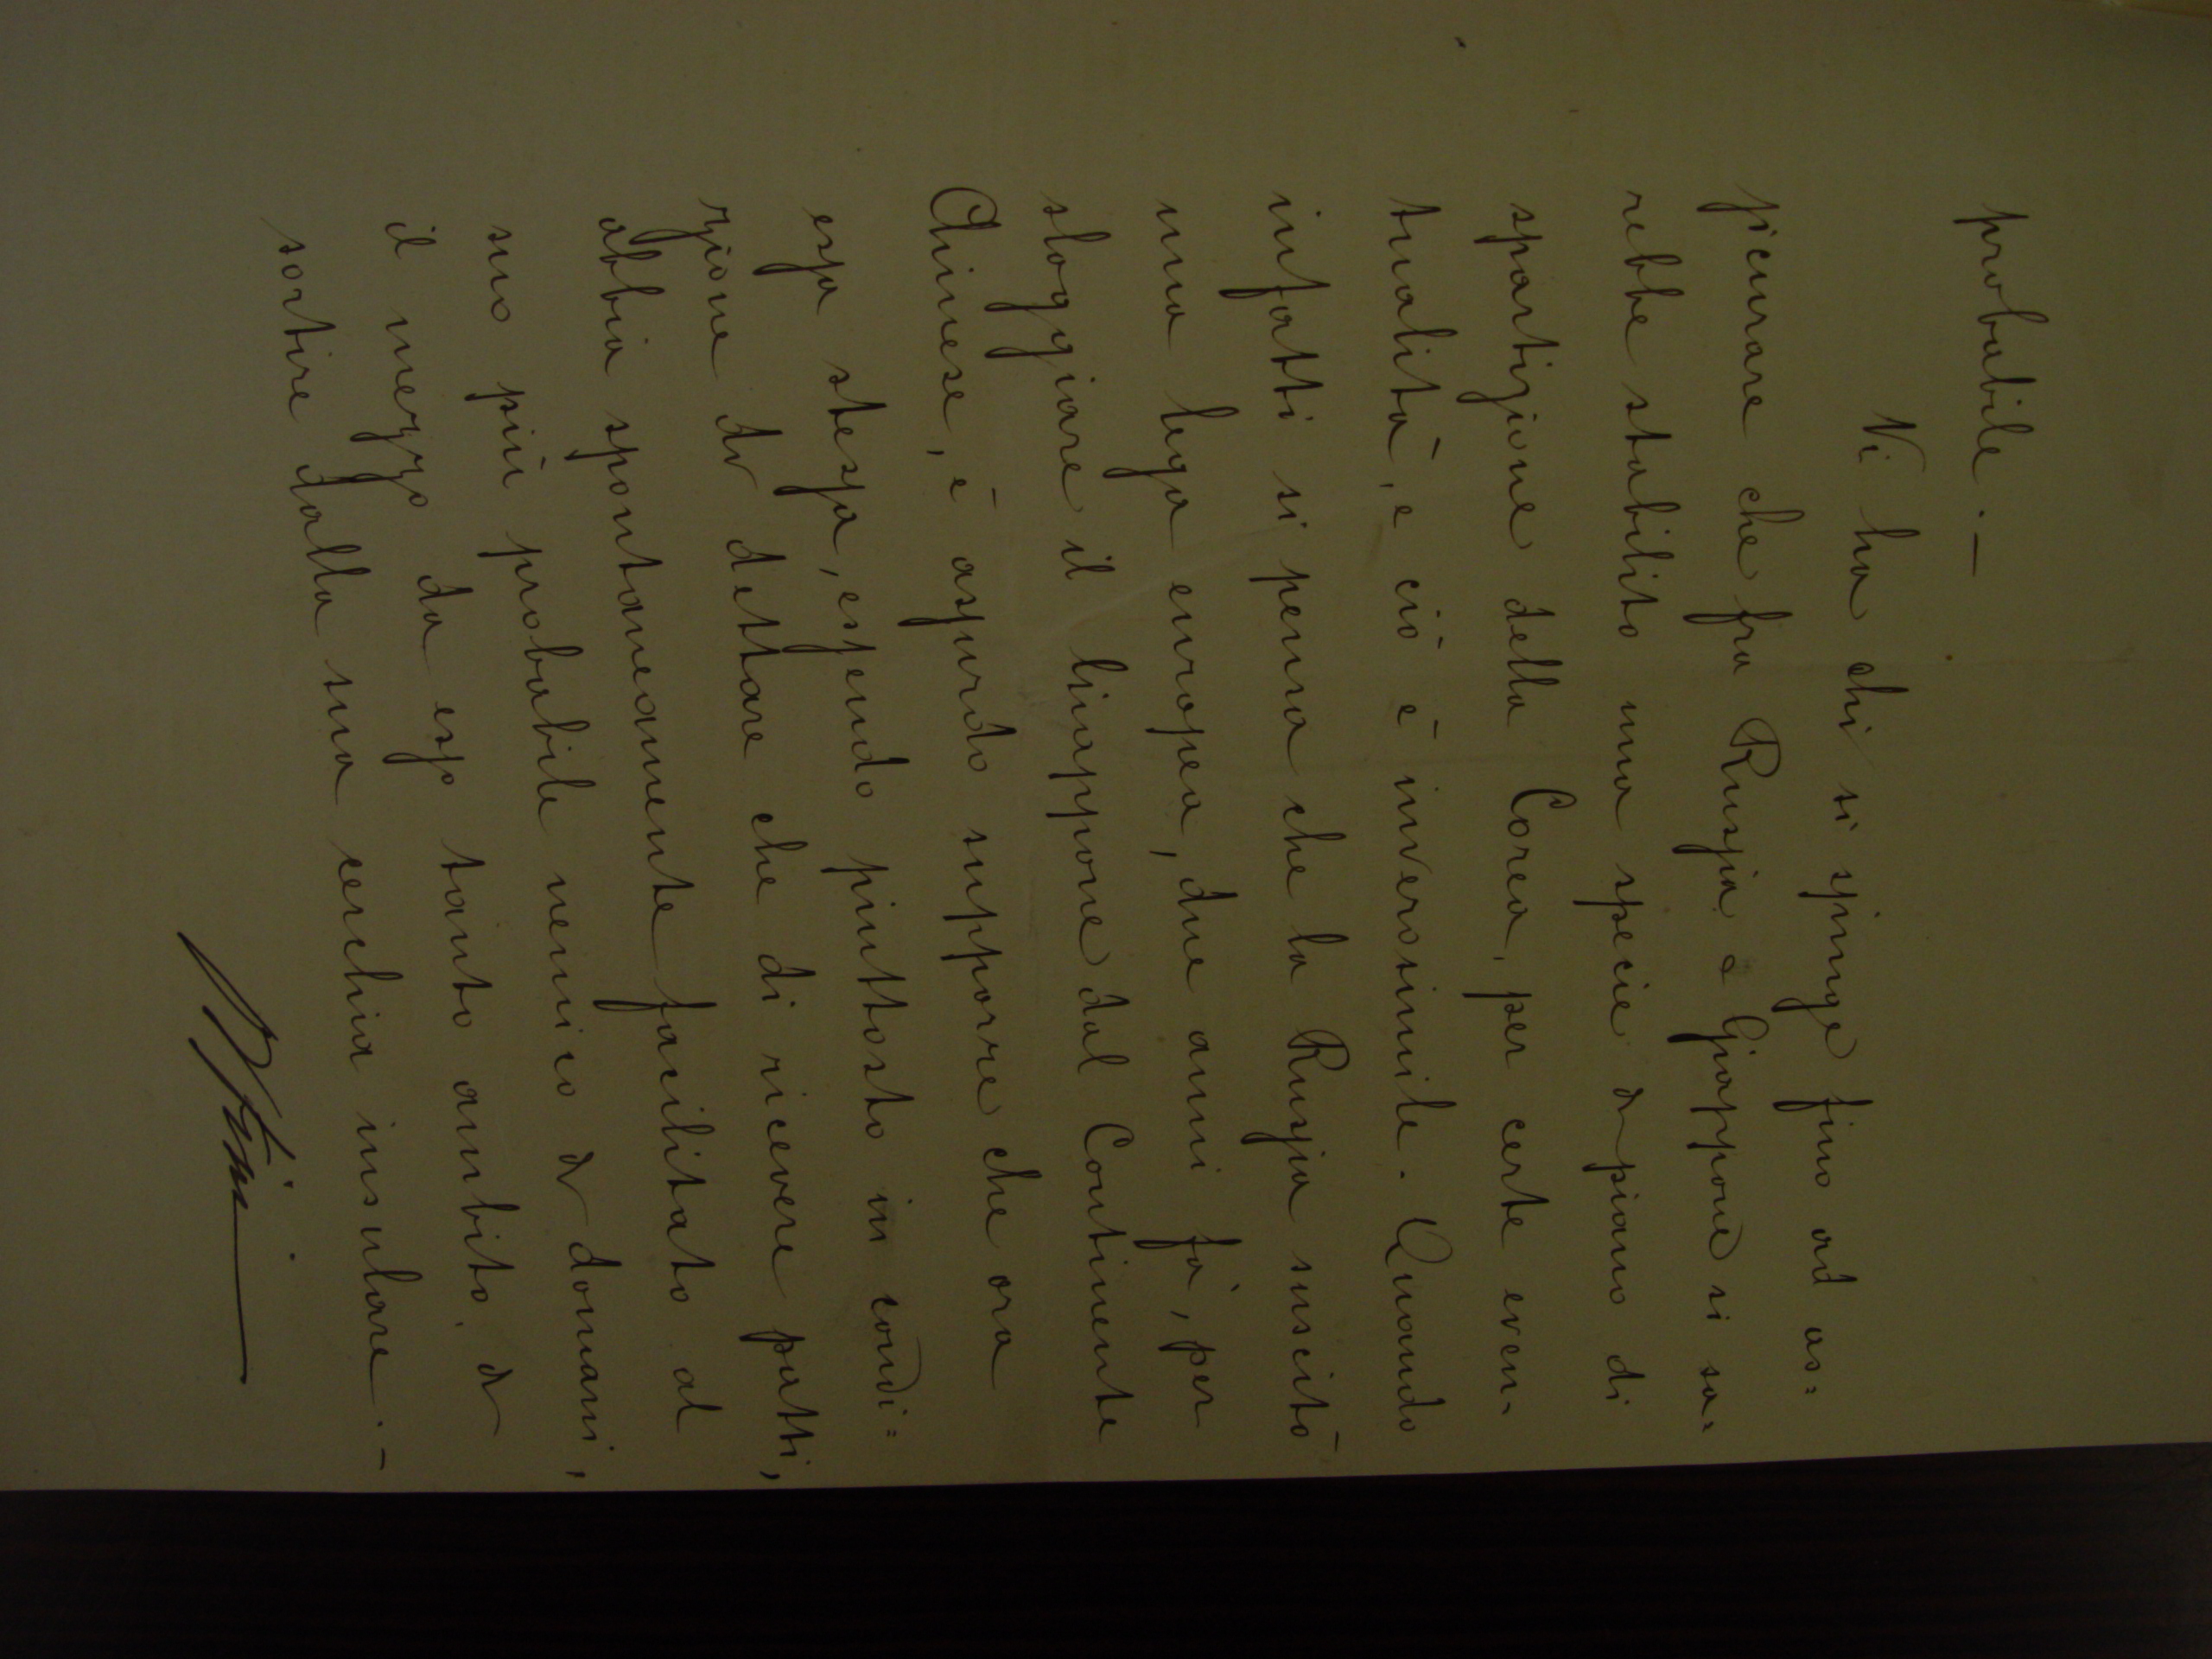 probabile. —
Vi ha chi si spinge fino ad as=
sicurare che fra Russia e Giappone si sa=
rebbe stabilito una specie di piano di
spartizione della Corea, per certe even=
tualità, e ciò è inverosimile. Quando
infatti si pensa che la Russia suscitò
una lega europea, due anni fà, per
sloggiare il Giappone dal Continente
Chinese, è assurdo supporre che ora
essa stessa, essendo piuttosto in condi=
zione di dettare che di ricevere patti,
abbia spontaneamente facilitato al
suo più probabile nemico di domani,
il mezzo da esso tanto ambito, di
sortire dalla sua cerchia insulare. —